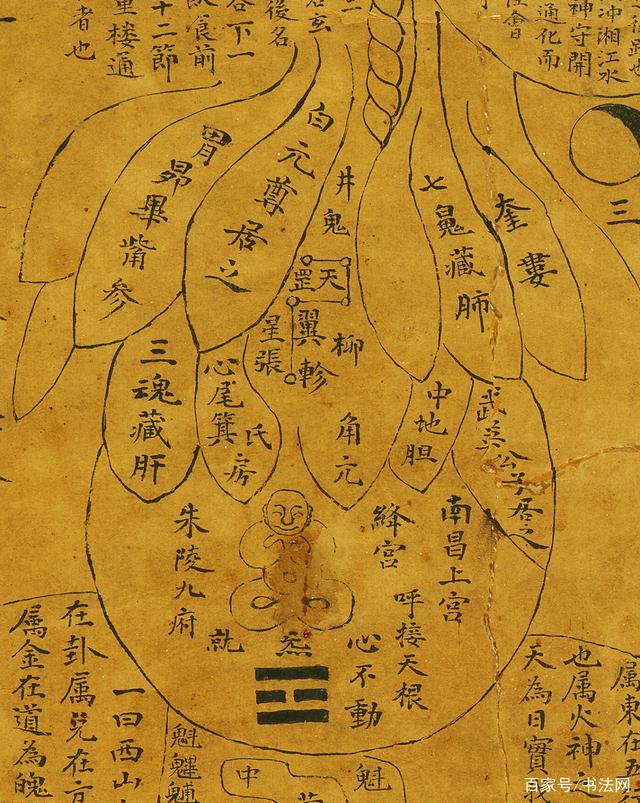 者也
里楼通
十二節
飲食前
合下一
後名
名玄
通化而
神守開
冲湘江水
三
胃昴畢觜参
白元尊居之
井鬼
天罡
翼軫
星張
柳
七魄藏肺
奎婁
三魂藏肝
心尾箕
氐房
角亢
中地胆
武英公子居之
南昌上宮
絳宮
呼接天根
心不動
炁
就
朱陵九府
在卦属兑在方
属金在道為魄
一曰西山
魁
中
魁
属東在五
也属火神之
天為日實
百家号/书法网